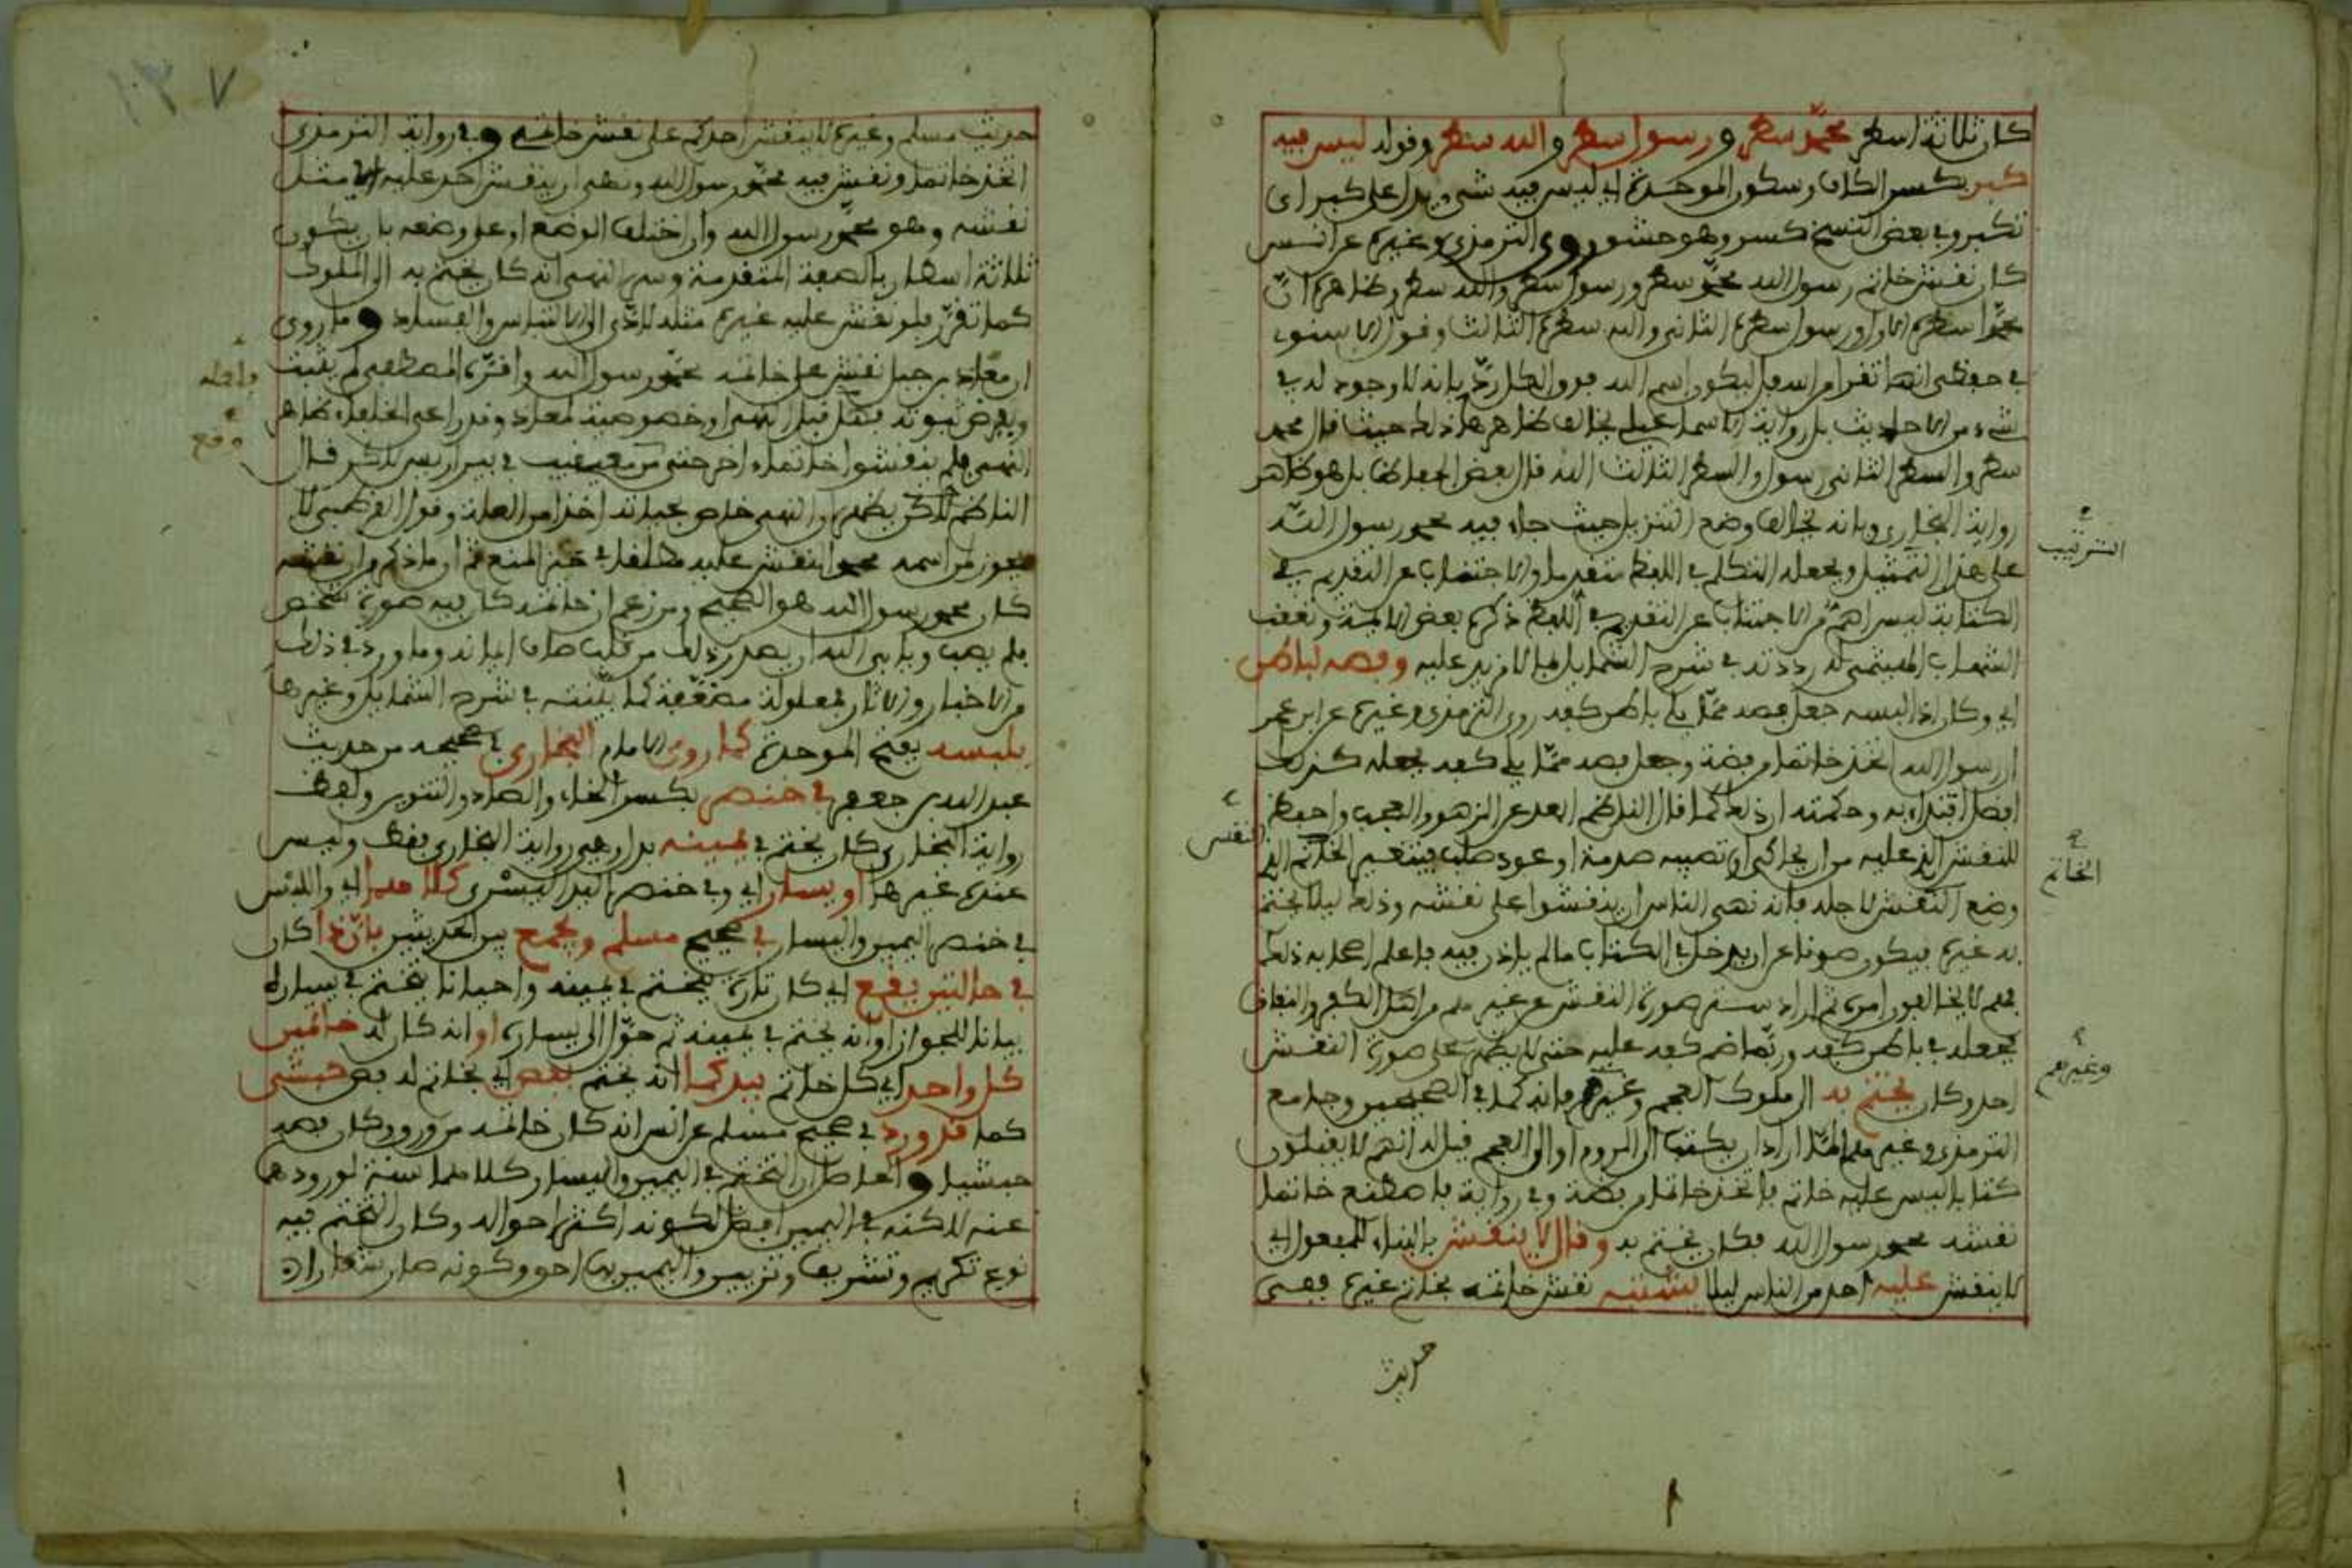 كان ثلاثة اسطر محمد سطر ورسول سطر والله سطر وقوله ليس فيه
كبر بكسر الكاف وسكون الموحدة اي ليس فيه شيء يدل على كبر اي
تكبر وفي بعض النسخ كسر وهو حشو روى الترمذي وغيره عن انس
كان نقش خاتم رسول الله محمد سطر ورسول سطر والله سطر وظاهره ان
محمدا سطره الاول ورسول سطره الثاني والله سطره الثالث وقول الاسنوي
في حفظي انها تقرا من اسفل ليكون اسم الله فوق الكل رد بانه لا وجود له في
شيء من الاحاديث بل رواية الاسماعيلي يخالف ظاهرها ذلك حيث قال محمد
سطر والسطر الثاني رسول والسطر الثالث الله قال بعض الحفاظ بل هو ظاهر
رواية البخاري وبانه يخالف وضع التنزيل حيث جاء فيه محمد رسول الله
الترتيب
على هذا التمثيل ويجعله التكلم في اللفظ متقدما والاجتناب عن التقديم في
الكتابة ليس اهم من الاجتناب عن التقديم في اللفظ ذكره بعض الائمة وتعقب
الشهاب الهيتمي له رددته في شرح الشمايل بما لا مزيد عليه وفصه لباطن
اي وكان اذا لبسه جعل فصه مما يلي باطن كفه روى الترمذي وغيره عن ابن عمر
ان رسول الله اتخذ خاتما من فضة وجعل فصه مما يلي كفه فجعله كذلك
افضل اقتداء به وحكمته ان ذلك كما قال الناظم ابعد عن الزهو والعجب واحفظ
للنقش الذي عليه من ان يحاكى او تصيبه صدمة او عود صلب فيتغير الخاتم الذي
النقش
الخاتم
وضع النقش لاجله فانه نهى الناس ان ينقشوا على نقشه وذلك ليلا يختم
به غيره فيكون صونا عن ان يدخل في الكتاب ما لم ياذن فيه فاعلم اصحابه ذلك
فهم لا يخالفون امره ثم اراد ستر صورة النقش عن غيرهم من اهل الكفر والنفاق
فجعله في باطن كفه وربما ضم كفه عليه حتى لا يظهر على صورة النقش
احد وكان يختم به الى ملوك العجم وغيرهم فانه كما في الصحيحين وجامع
وغيرهم
الترمذي وغيرهم لما اراد ان يكتب الى الروم او الى العجم قيل له انهم لا يقبلون
كتابا ليس عليه خاتم فاتخذ خاتما من فضة وفي رواية فاصطنع خاتما
نقشه محمد رسول الله فكان يختم به وقال لا ينقش بالبناء للمفعول اي
لا ينقش عليه احد من الناس ليلا يشتبه نقش خاتمه بخاتم غيره ففي
حديث
١٣٧
حديث مسلم وغيره لا ينقش احدكم على نقش خاتمي وفي رواية الترمذي
اتخذ خاتما ونقش فيه محمد رسول الله ونهى ان ينقش احد عليه اي مثل
نقشه وهو محمد رسول الله وان اختلف الوضع او على وضعه بان يكون
ثلاثة اسطار بالصفة المتقدمة وسر النهي انه كان يختم به الى الملوك
كما تقرر فلو نقش عليه غيره مثله لادى الى الالتباس والفساد وما روي
ان معاذ بن جبل نقش على خاتمه محمد رسول الله واقره المصطفى لم يثبت
وبفرض ثبوته فلعل قبل النهي او خصوصية لمعاذ وقد راعى الخلفاء ظاهر
وقع
النهي فلم ينقشوا خاتما اخر حتى من معيقيب في بير اريس لاكن قال
الناظم لاكن يظهر ان النهي خاص بحياته اخذا من العلة وقول القرطبي لا
يجوز من اسمه محمد النقش عليه مطلقا في حيز المنع ثم ان ما ذكر من ان نقشه
كان محمد رسول الله هو الصحيح ومن زعم ان خاتمه كان فيه صورة شخص
فلم يصب ويابى الله ان يصدر ذلك من قلب صاف ايمانه وما ورد في ذلك
من الاخبار والاثار فمعلولة مضعفة كما بينته في شرح الشمايل وغيرها
يلبسه بفتح الموحدة كما روى الامام البخاري في صحيحه من حديث
عبد الله بن جعفر في خنصر بكسر الخاء والصاد والتنوين ولفظ
رواية البخاري كان يختم في يمينه بدا رهي رواية البخاري فقط وليس
عنده غيرها او يسار اي وفي خنصر اليد اليسرى كلاهما اي واللبس
في خنصر اليمين واليسار في صحيح مسلم ويجمع بين الحديثين بان ذا كان
في حالتين يقع اي كان تارة يتختم في يمينه واحيانا يختم في يساره
بيانا للجواز او انه يختم في يمينه ثم حول الى يساره او انه كان له خاتمين
كل واحد اي كل خاتم بيد كما انه يختم بفص اي بخاتم له فص حبشي
كما قد ورد في صحيح مسلم عن انس انه كان خاتمه من ورق وكان فصه
حبشيا والحاصل ان التختم في اليمين واليسار كلاهما سنة لورودهما
عنه لاكنه في اليمين افضل لكونه اكثر احواله وكان التختم فيه
نوع تكريم وتشريف وتزيين واليمين بها احق وكونه صار شعارا